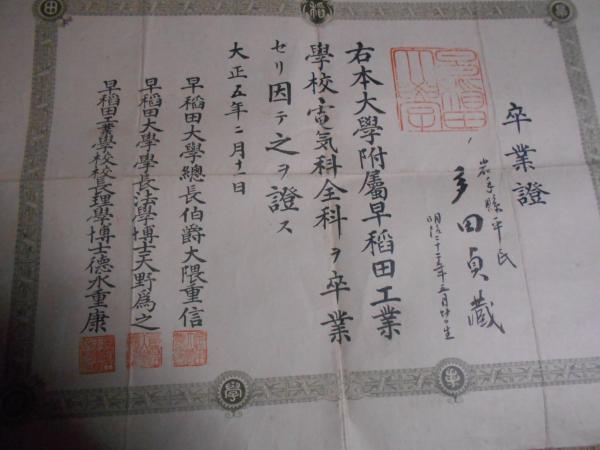 卒業證
岩手縣平民
多田貞藏
明治二十三年五月廿日生
右本大學附屬早稻田工業
學校電氣科全科ヲ卒業
セリ因テ之ヲ證ス
大正五年二月十一日
早稻田大學總長伯爵大隈重信
早稻田大學學長法學博士天野爲之
早稻田工業學校校長理學博士德永重康
稻
田
學